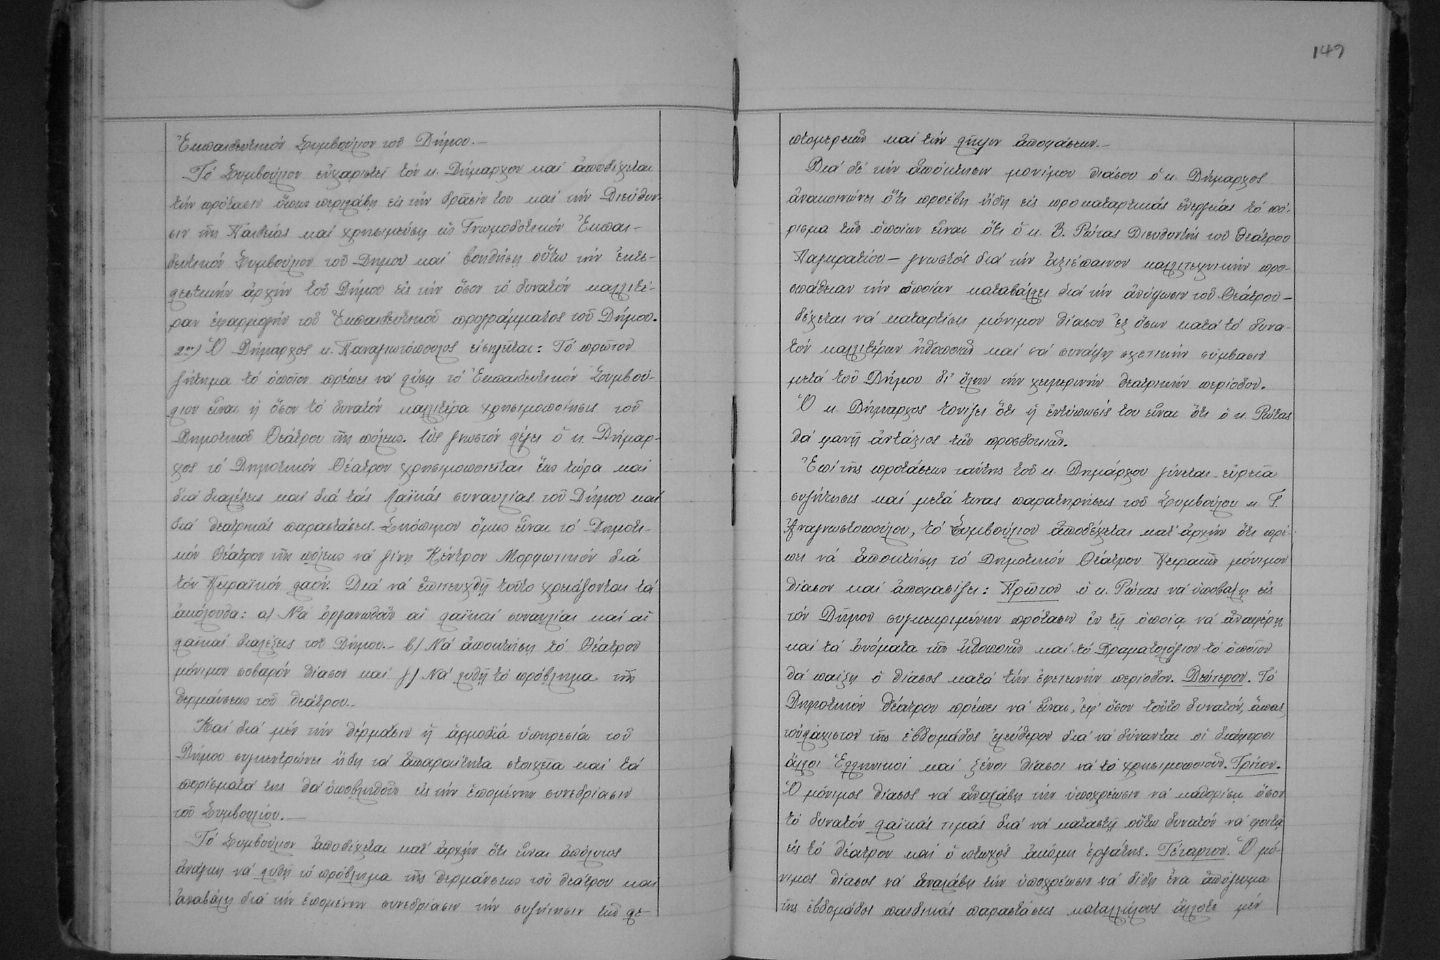 Ἐκπαιδευτικόν Συμβούλιον τοῦ Δήμου.—
Τό Συμβούλιον εὐχαριστεῖ τόν κ. Δήμαρχον καί ἀποδέχεται
τήν πρότασιν ὅπως περιλάβῃ εἰς τήν δρᾶσίν του καί τήν Διεύθυν-
σιν τῆς Παιδείας καί χρησιμεύσῃ ὡς Γνωμοδοτικόν Ἐκπαι-
δευτικόν Συμβούλιον τοῦ Δήμου καί βοηθήσῃ οὕτω τήν ἐκτε-
λεστικήν ἀρχήν τοῦ Δήμου εἰς τήν ὅσον τό δυνατόν καλλιτέ-
ραν ἐφαρμογήν τοῦ Ἐκπαιδευτικοῦ προγράμματος τοῦ Δήμου.
2ον) Ὁ Δήμαρχος κ. Παναγιωτόπουλος εἰσηγεῖται: Τό πρῶτον
ζήτημα τό ὁποῖον πρέπει νά λύσῃ τό Ἐκπαιδευτικόν Συμβού-
λιον εἶναι ἡ ὅσον τό δυνατόν καλλιτέρα χρησιμοποίησις τοῦ
Δημοτικοῦ Θεάτρου τῆς πόλεως. Ὡς γνωστόν λέγει ὁ κ. Δήμαρ-
χος τό Δημοτικόν Θέατρον χρησιμοποιεῖται ἕως τώρα καί
διά διαλέξεις καί διά τάς λαϊκάς συναυλίας τοῦ Δήμου καί
διά θεατρικάς παραστάσεις. Σκόπιμον ὅμως εἶναι τό Δημοτι-
κόν Θέατρον τῆς πόλεως νά γίνῃ Κέντρον Μορφωτικόν διά
τόν Πειραϊκόν λαόν. Διά νά ἐπιτευχθῇ τοῦτο χρειάζονται τά
ἀκόλουθα: α) Νά ὀργανωθοῦν αἱ λαϊκαί συναυλίαι καί αἱ
λαϊκαί διαλέξεις τοῦ Δήμου.— β) Νά ἀποκτήσῃ τό Θέατρον
μόνιμον σοβαρόν θίασον καί γ) Νά λυθῇ τό πρόβλημα τῆς
θερμάνσεως τοῦ θεάτρου.—
Καί διά μέν τήν θέρμανσιν ἡ ἁρμοδία ὑπηρεσία τοῦ
Δήμου συγκεντρώνει ἤδη τά ἀπαραίτητα στοιχεῖα καί τά
πορίσματά της θά ὑποβληθοῦν εἰς τήν ἑπομένην συνεδρίασιν
τοῦ Συμβουλίου.—
Τό Συμβούλιον ἀποδέχεται κατ' ἀρχήν ὅτι εἶναι ἀπόλυτος
ἀνάγκη νά λυθῇ τό πρόβλημα τῆς θερμάνσεως τοῦ θεάτρου καί
ἀναβάλλει διά τήν ἑπομένην συνεδρίασιν τήν συζήτησιν τῶν λε-
149
πτομερειῶν καί τήν λῆψιν ἀποφάσεων.—
Διά δέ τήν ἀπόκτησιν μονίμου θιάσου ὁ κ. Δήμαρχος
ἀνακοινώνει ὅτι προέβη ἤδη εἰς προκαταρτικάς ἐνεργείας τό πό-
ρισμα τῶν ὁποίων εἶναι ὅτι ὁ κ. Β. Ρώτας Διευθυντής τοῦ Θεάτρου
Παγκρατίου — γνωστός διά τήν ἀξιέπαινον καλλιτεχνικήν προ-
σπάθειαν τήν ὁποίαν καταβάλλει διά τήν ἀνύψωσιν τοῦ Θεάτρου —
δέχεται νά καταρτίσῃ μόνιμον θίασον ἐξ ὅσων κατά τό δυνα-
τόν καλλιτέρων ἠθοποιῶν καί νά συνάψῃ σχετικήν σύμβασιν
μετά τοῦ Δήμου δι' ὅλην τήν χειμερινήν θεατρικήν περίοδον.
Ὁ κ. Δήμαρχος τονίζει ὅτι ἡ ἐντύπωσίς του εἶναι ὅτι ὁ κ. Ρώτας
θά φανῇ ἀντάξιος τῶν προσδοκιῶν.
Ἐπί τῆς προτάσεως ταύτης τοῦ κ. Δημάρχου γίνεται εὐρεῖα
συζήτησις καί μετά τινας παρατηρήσεις τοῦ Συμβούλου κ. Γ.
Ἀναγνωστοπούλου, τό Συμβούλιον ἀποδέχεται κατ' ἀρχήν ὅτι πρέ-
πει νά ἀποκτήσῃ τό Δημοτικόν Θέατρον Πειραιῶς μόνιμον
θίασον καί ἀποφασίζει: Πρῶτον ὁ κ. Ρώτας νά ὑποβάλῃ εἰς
τόν Δῆμον συγκεκριμένην πρότασιν ἐν τῇ ὁποίᾳ νά ἀναφέρῃ
καί τά ὀνόματα τῶν ἠθοποιῶν καί τό Δραματολόγιον τό ὁποῖον
θά παίξῃ ὁ θίασος κατά τήν ἐφετεινήν περίοδον. Δεύτερον. Τό
Δημοτικόν θέατρον πρέπει νά εἶναι, ἐφ' ὅσον τοῦτο δυνατόν, ἅπαξ
τοὐλάχιστον τῆς ἑβδομάδος ἐλεύθερον διά νά δύνανται οἱ διάφοροι
ἄλλοι Ἑλληνικοί καί ξένοι θίασοι νά τό χρησιμοποιοῦν. Τρίτον.
Ὁ μόνιμος θίασος νά ἀναλάβῃ τήν ὑποχρέωσιν νά καθορίσῃ ὅσον
τό δυνατόν λαϊκάς τιμάς διά νά καταστῇ οὕτω δυνατόν νά φοιτᾷ
εἰς τό θέατρον καί ὁ πτωχός ἀκόμη ἐργάτης. Τέταρτον. Ὁ μό-
νιμος θίασος νά ἀναλάβῃ τήν ὑποχρέωσιν νά δίδῃ ἕνα ἀπόγευμα
τῆς ἑβδομάδος παιδικάς παραστάσεις καταλλήλους ἄλλοτε μέν